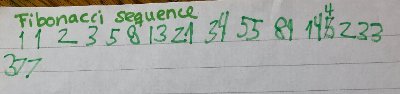 Fibonacci sequence
1 1 2 3 5 8 13 21 34 55 89 144 233
377